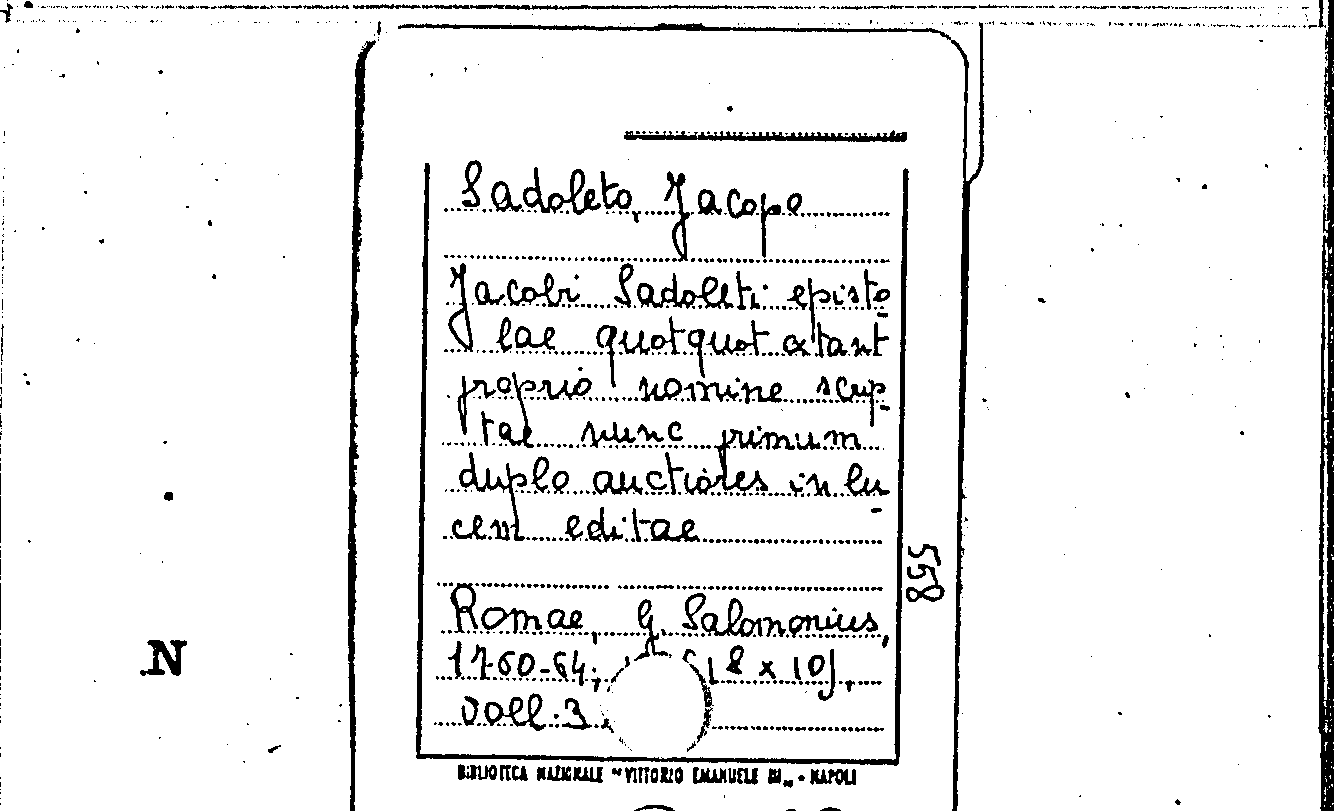 Sadoleto, Jacopo
Jacobi Sadoleti episto
lae quotquot extant
proprio nomine scrip
tae nunc primum
duplo auctiores in lu
cem editae
Romae, G. Salomonius,
1760-64; 18 x 10],
voll. 3
558
N
BIBLIOTECA NAZIONALE "VITTORIO EMANUELE III" - NAPOLI